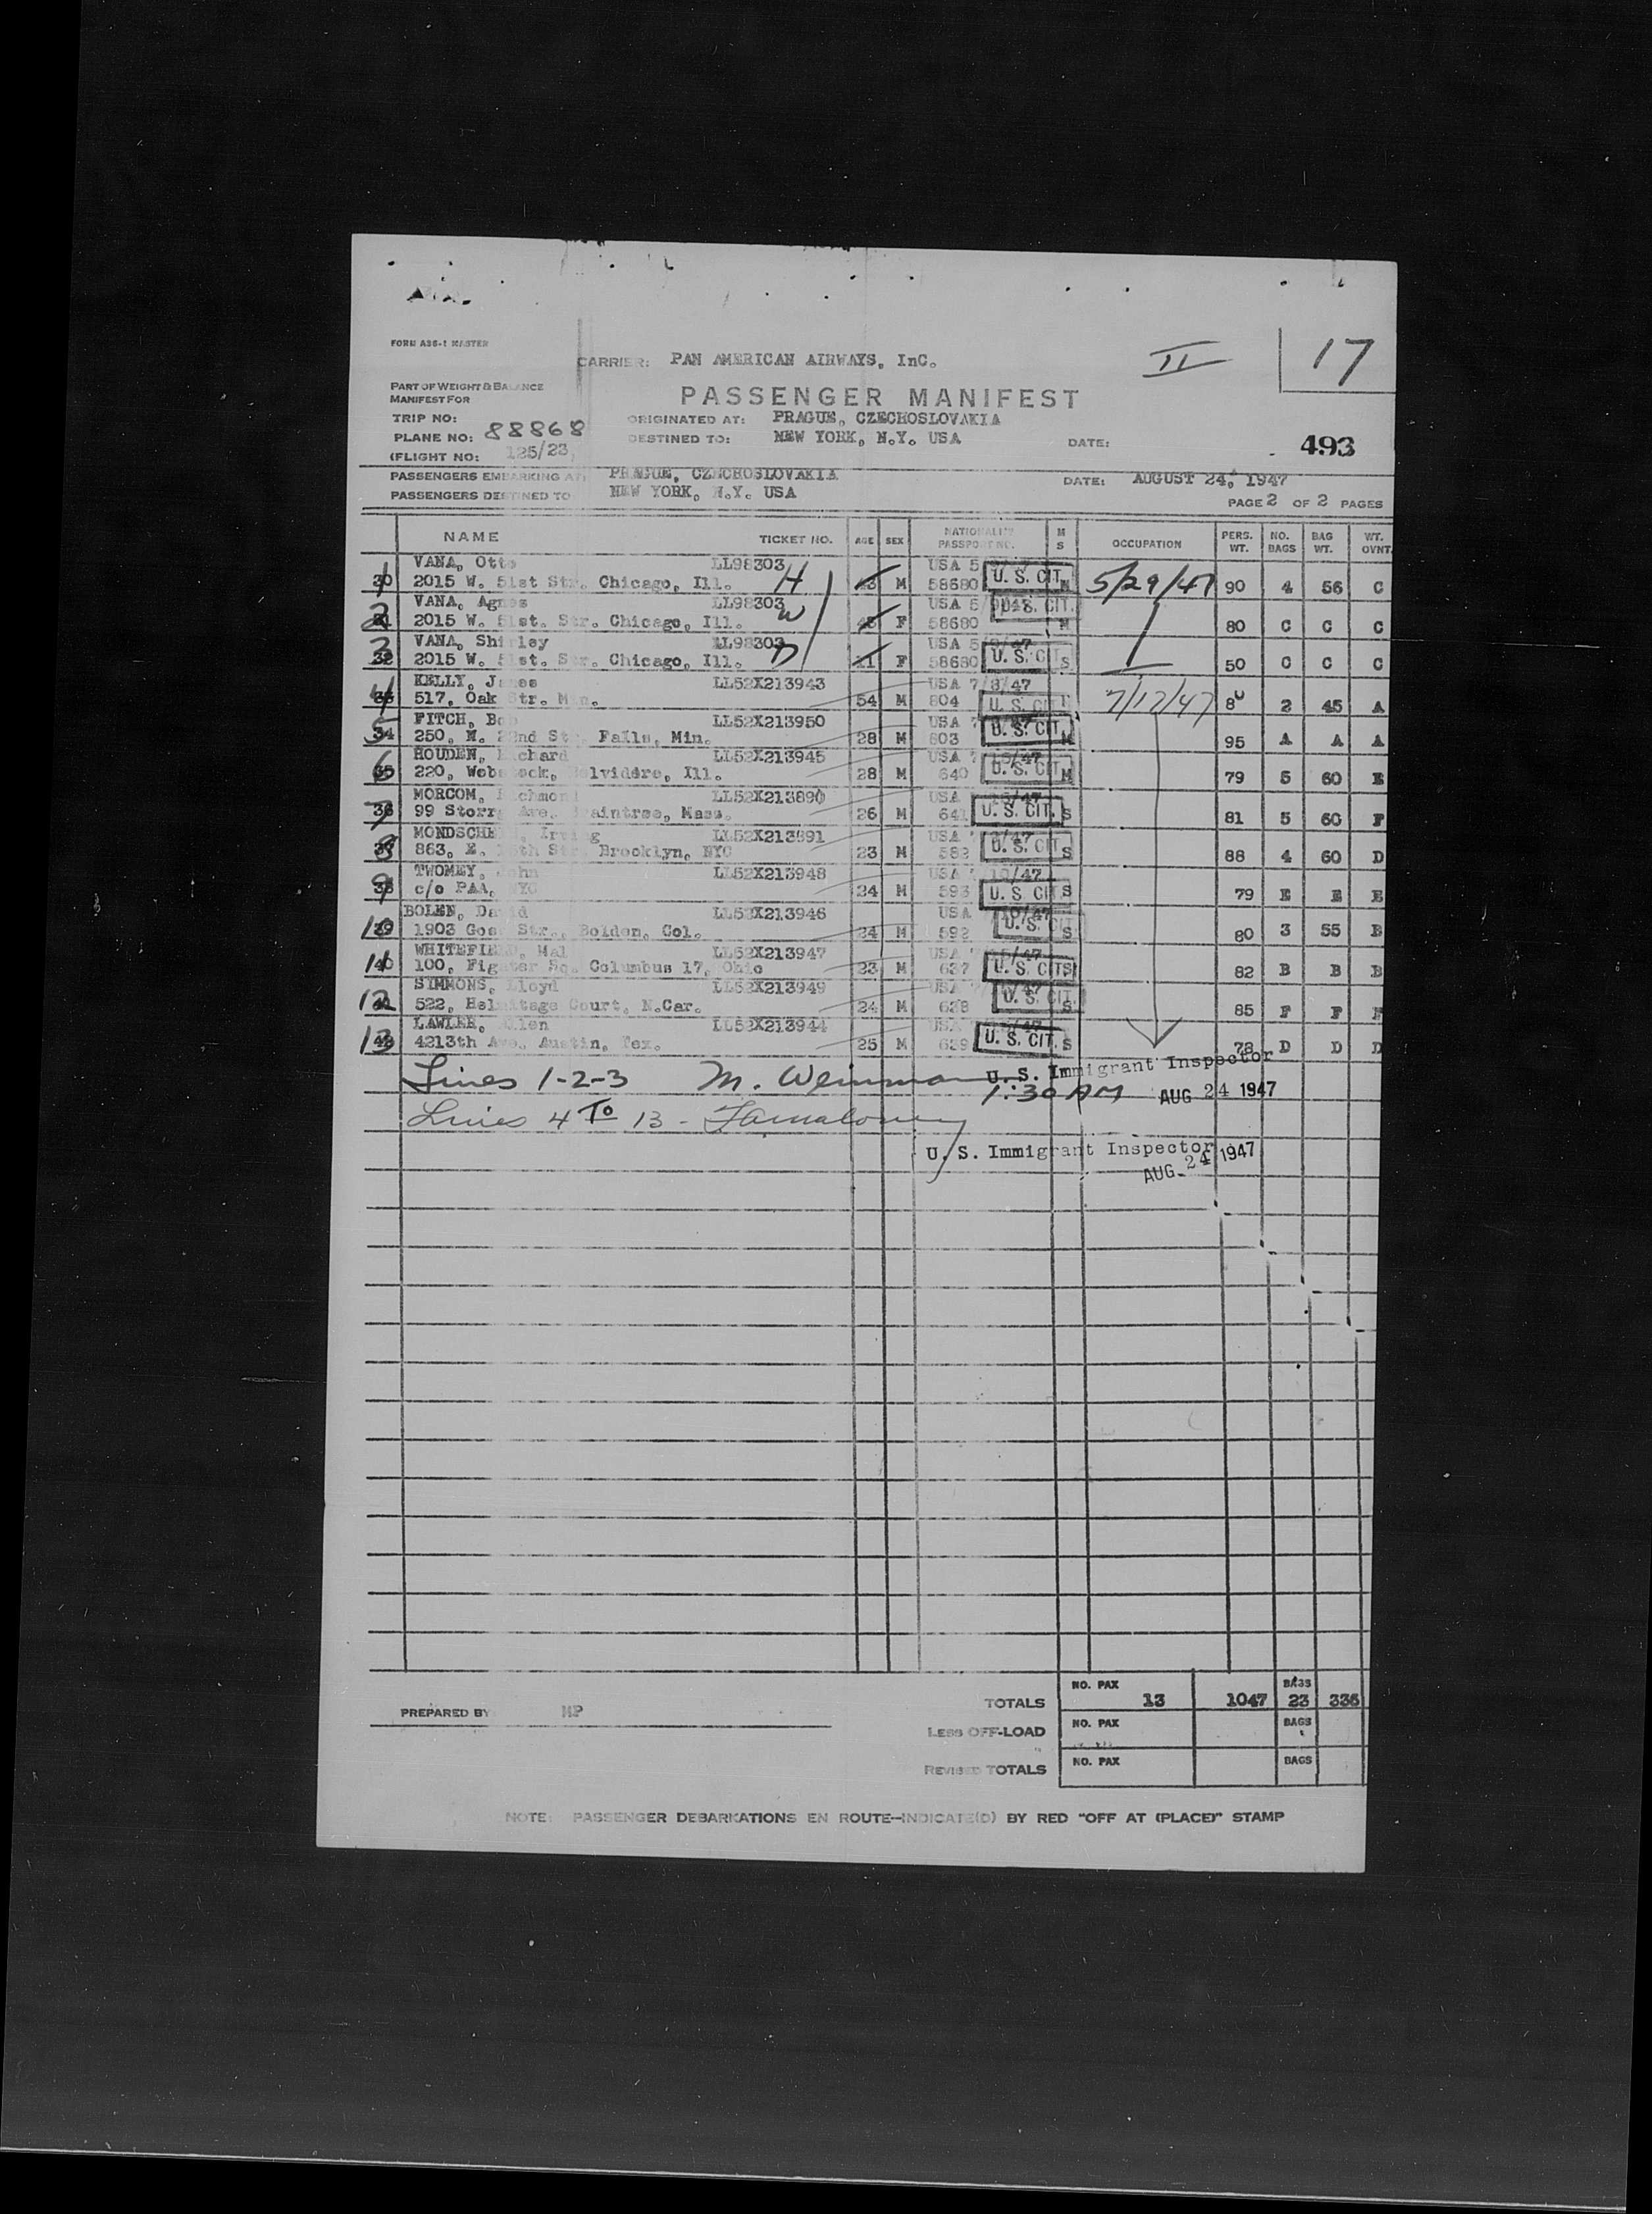 FORM A36-1 MASTER
CARRIER: PAN AMERICAN AIRWAYS, InC.
II
17
PART OF WEIGHT & BALANCE
MANIFEST FOR
PASSENGER MANIFEST
TRIP NO:
ORIGINATED AT: PRAGUE, CZECHOSLOVAKIA
PLANE NO: 88868
DESTINED TO: NEW YORK, N.Y. USA
DATE:
493
(FLIGHT NO: 125/23,
PASSENGERS EMBARKING AT: PRAGUE, CZECHOSLOVAKIA
DATE: AUGUST 24, 1947
PASSENGERS DESTINED TO NEW YORK, N.Y. USA
PAGE 2 OF 2 PAGES
NAME TICKET NO. AGE SEX NATIONALITY PASSPORT NO. M S OCCUPATION PERS. WT. NO. BAGS BAG WT. WT. OVNT.
VANA, Otto LL98303 USA 5
1 30 2015 W. 51st Str. Chicago, Ill. H M 58680 U. S. CIT. M 5/29/47 90 4 56 C
VANA, Agnes LL98303 USA 5/
2 31 2015 W. 51st. Str. Chicago, Ill. W F 58680 U. S. CIT. M 80 C C C
VANA, Shirley LL98303 USA 5/ /47
3 32 2015 W. 51st. Str. Chicago, Ill. D 11 F 58680 U. S. CIT S 50 C C C
KELLY, James LL52X213943 USA 7/8/47
4 517, Oak Str. Min. 54 M 804 U. S. CIT 7/12/47 80 2 45 A
FITCH, Bob LL52X213950 USA 7
5 34 250, N. 22nd St. Falls, Min. 28 M 803 U. S. CIT. M 95 A A A
HOUDEN, Richard LL52X213945 USA 7 /47
6 35 220, Webs Belvidere, Ill. 28 M 640 U. S. CIT M 79 5 60 E
MORCOM, Richmond LL52X213890 USA /47
7 36 99 Storr Ave. Braintree, Mass. 26 M 641 U. S. CIT. S 81 5 60 F
MONDSCHE , Irving LL52X213891 USA 7 /47
8 863, E. th Str. Brooklyn, NYC 23 M 582 U. S. CIT S 88 4 60 D
TWOMEY, John LL52X213948 USA 7 10/47
9 38 c/o PAA, NYC 24 M 593 U. S. CIT S 79 E E E
BOLEN, David LL52X213946 USA /47
10 39 1903 Goss Str., Bolden, Col. 24 M 592 U. S. CIT S 80 3 55 B
WHITEFIELD, Mal LL52X213947 USA 7 /47
11 40 100, Fighter Sq. Columbus 17, Ohio 23 M 637 U. S. CIT S 82 B B B
SIMMONS, Lloyd LL52X213949 USA 7/ /47
12 522, Helmitage Court, N.Car. 24 M 638 U. S. CIT S 85 F F F
LAWLER, Allen LL52X213944 USA /47
13 4213th Ave. Austin, Tex. 25 M 639 U. S. CIT. S 78 D D D
Lines 1-2-3 M. Weinman U. S. Immigrant Inspector
1:30 AM AUG 24 1947
Lines 4 To 13 -
U. S. Immigrant Inspector
AUG 24 1947
NO. PAX BAGS
TOTALS 13 1047 23 336
PREPARED BY MP
LESS OFF-LOAD NO. PAX BAGS
REVISED TOTALS NO. PAX BAGS
NOTE: PASSENGER DEBARKATIONS EN ROUTE—INDICATE(D) BY RED "OFF AT (PLACE)" STAMP